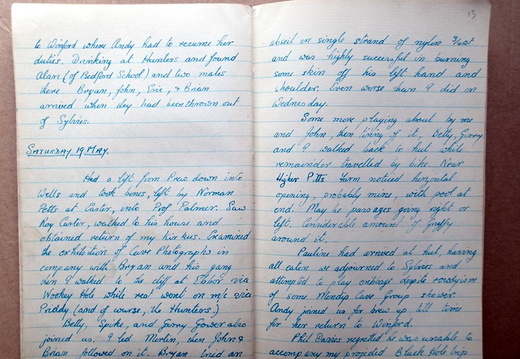 to Winford where Andy had to resume her
duties. Drinking at Hunters and found
Alan (of Bedford School) and two males
there. Bryan, John, Eric, & Brian
arrived when they had been thrown out
of Sylvies.
SATURDAY 19 MAY.
Had a lift from Prew down into
Wells and took buses, left by Norman
Petts at Easter, onto Prof Palmer. Saw
Roy Carter, walked to his house and
obtained return of my Examined
the exhibition of Cave Photographs in
company with Bryan and his gang
then I walked to the cliff at Ebbor via
Wookey Hole while rest went on m/c via
Priddy (and of course, the Hunters.)
Betty, Spike, and Gerry Gower also
joined us. I led Merlin, then John &
Brian followed on it. Bryan tried an
13
abseil on single strand of nylon
and was highly successful in burning
some skin off his left hand and
shoulder. Even worse than I did on
Wednesday.
Some more playing about by me
and John, then tiring of it, Betty, Gerry
and I walked back to hut while
remainder travelled by bike. Near
Higher Pitts Farm noticed horizontal
opening, probably mine, with pool at
end. May be passages going right or
left. Considerable amount of Gruffy
around it.
Pauline had arrived at hut, having
all eaten we adjourned to Sylvies and
attempted to play cribbage despite
of some Mendip Cave Group shower.
Andy joined us for brew up till time
for her return to Winford.
Phil Davies regretted he was unable to
accompany my projected Black Hole trip